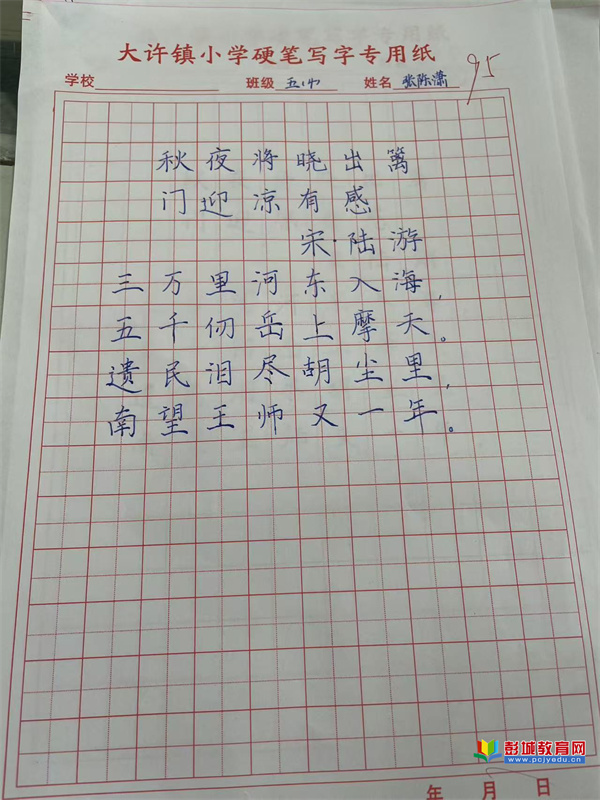 大许镇小学硬笔写字专用纸
学校 班级 五(4) 姓名 张陈潇
95
秋夜将晓出篱
门迎凉有感
宋·陆游
三万里河东入海,
五千仞岳上摩天。
遗民泪尽胡尘里,
南望王师又一年。
年 月 日
彭城教育网
www.pcjyedu.cn